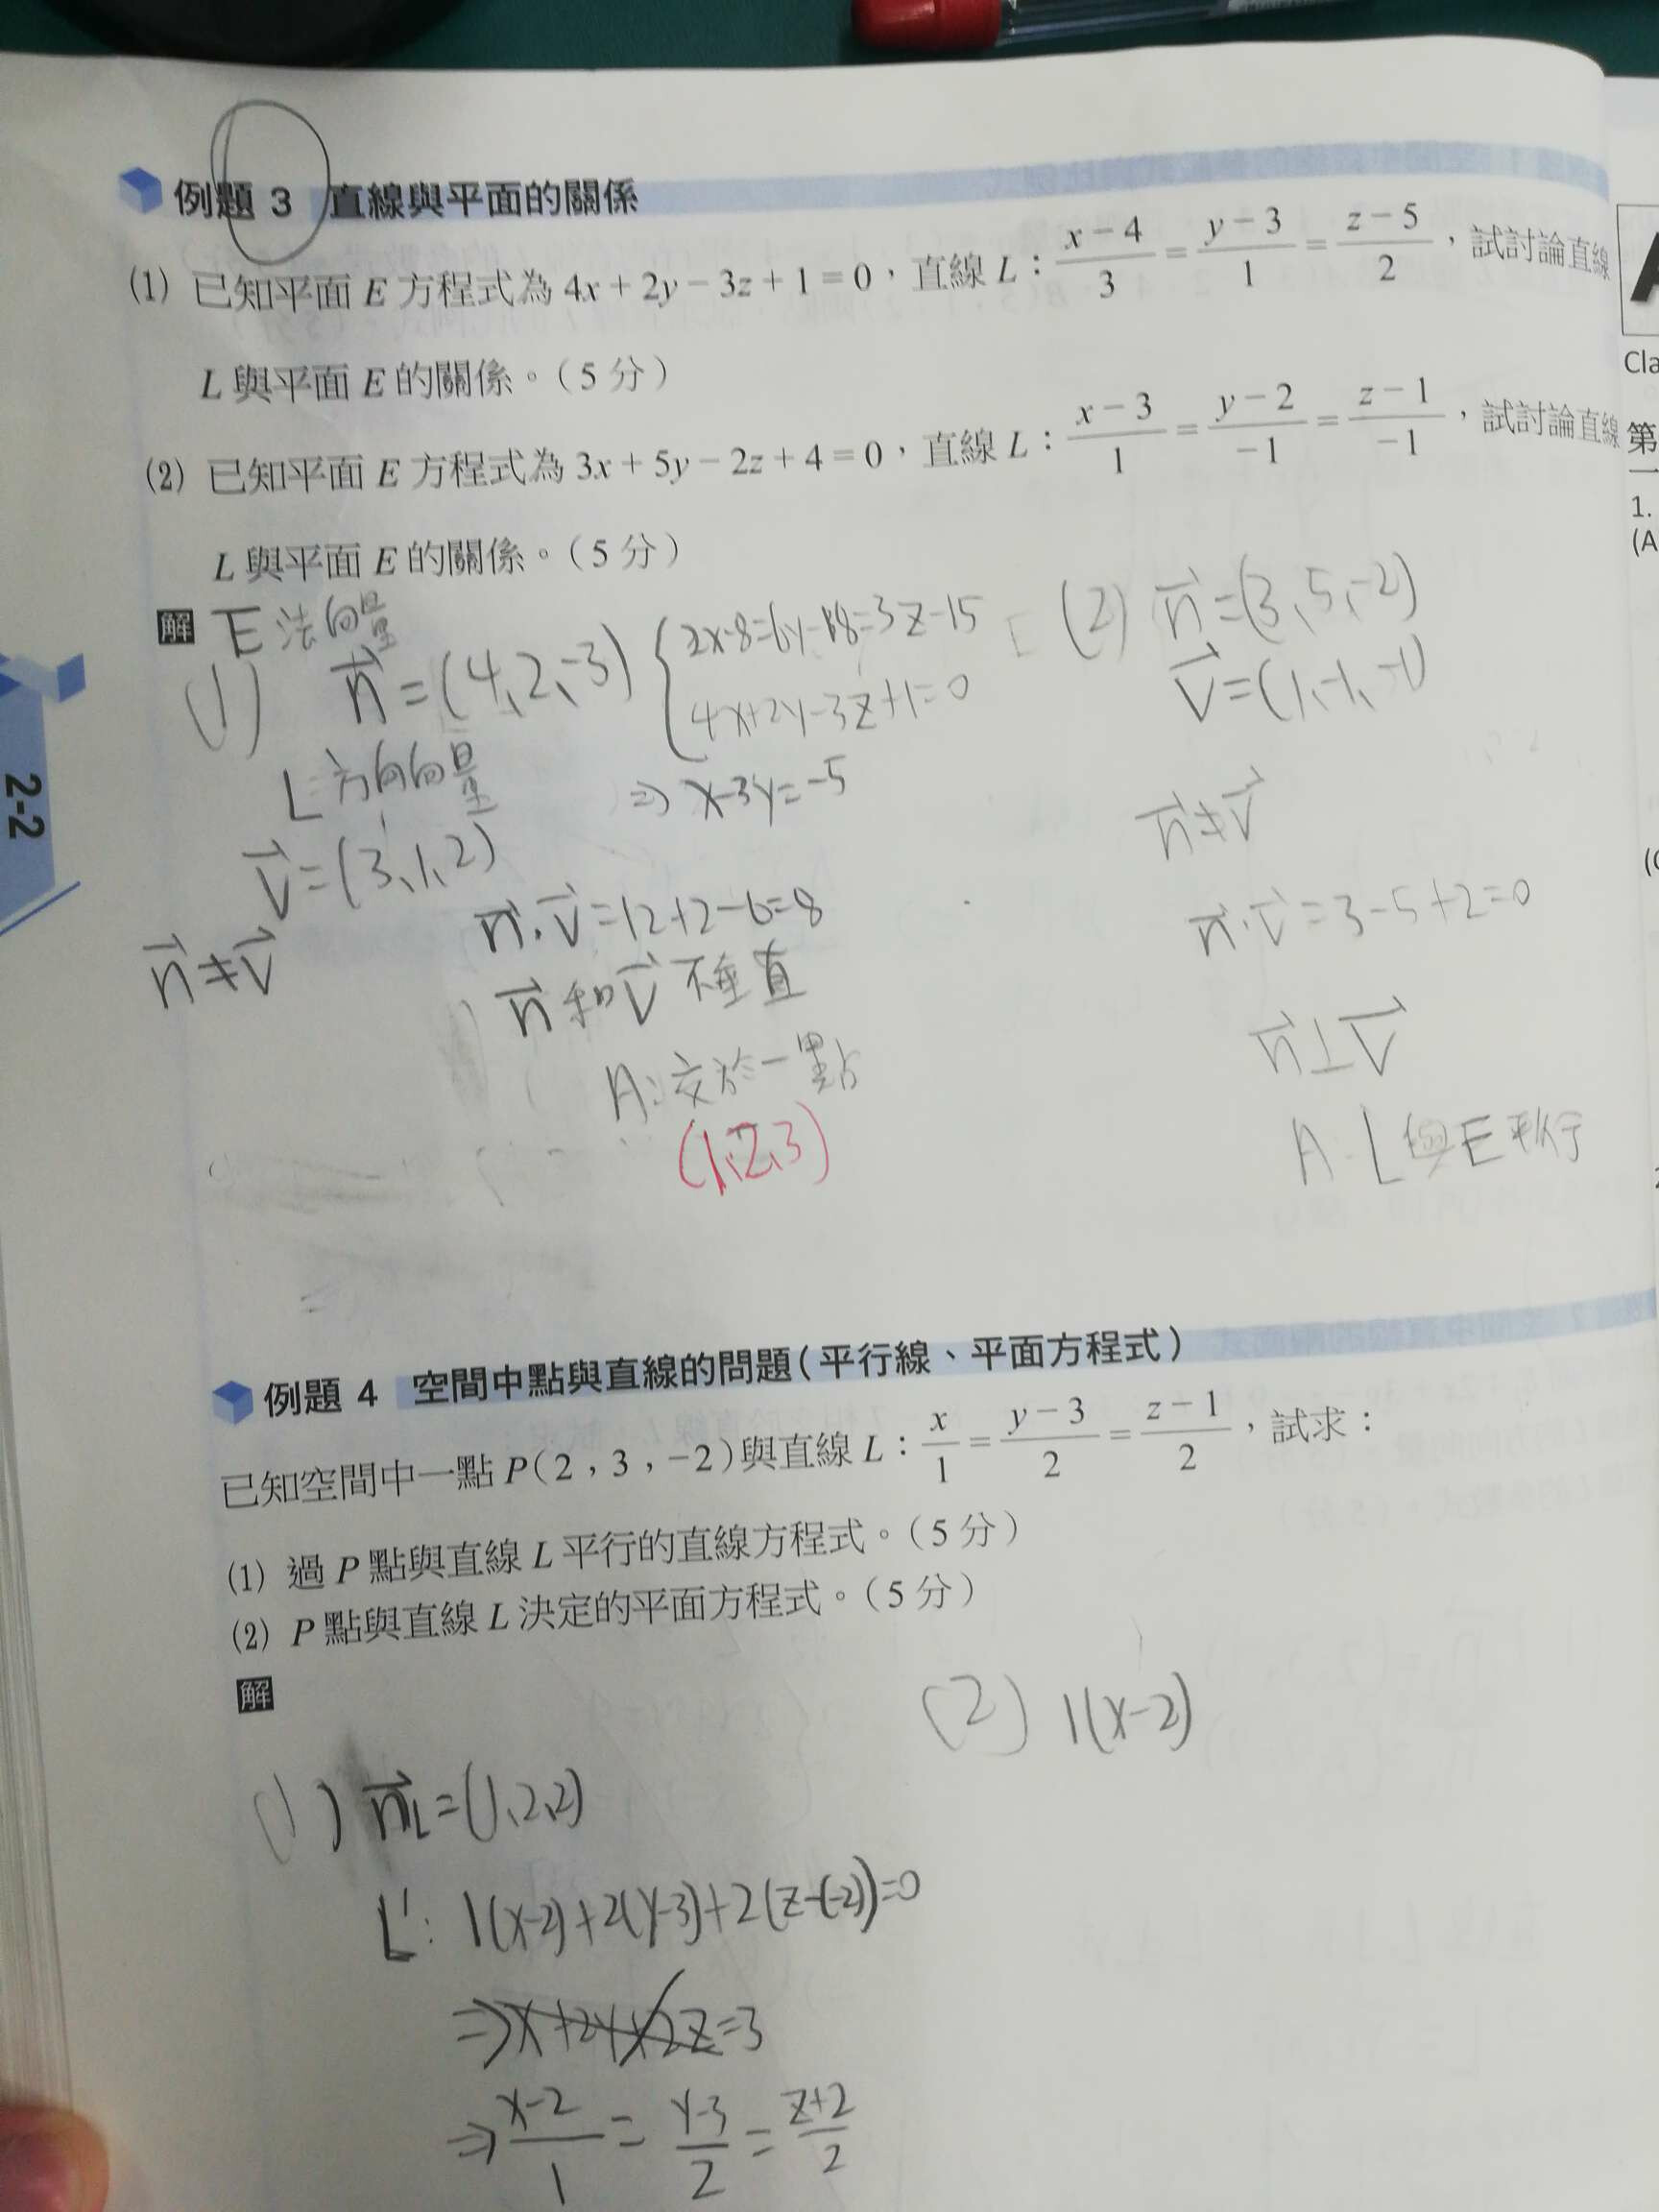 例題 3 直線與平面的關係
(1) 已知平面 E 方程式為 4x + 2y − 3z + 1 = 0，直線 L：\frac{x-4}{3} = \frac{y-3}{1} = \frac{z-5}{2}，試討論直線
L 與平面 E 的關係。（5 分）
(2) 已知平面 E 方程式為 3x + 5y − 2z + 4 = 0，直線 L：\frac{x-3}{1} = \frac{y-2}{-1} = \frac{z-1}{-1}，試討論直線
L 與平面 E 的關係。（5 分）
解
E 法向量
(1) \vec{n} = (4, 2, -3)
L 方向向量
\vec{v} = (3, 1, 2)
\vec{n} ≠ \vec{v}
2x-8=6y-18=3z-15
4x+2y-3z+1=0
⇒ x-3y=-5
\vec{n}·\vec{v}=12+2-6=8
\vec{n} 和 \vec{v} 不垂直
A：交於一點
(1, 2, 3)
(2) \vec{n}=(3, 5, -2)
\vec{v}=(1, -1, -1)
\vec{n}≠\vec{v}
\vec{n}·\vec{v}=3-5+2=0
\vec{n}⊥\vec{v}
A：L與E平行
2-2
例題 4 空間中點與直線的問題（平行線、平面方程式）
已知空間中一點 P(2，3，−2)與直線 L：\frac{x}{1} = \frac{y-3}{2} = \frac{z-1}{2}，試求：
(1) 過 P 點與直線 L 平行的直線方程式。（5 分）
(2) P 點與直線 L 決定的平面方程式。（5 分）
解
(1) \vec{n}_L=(1, 2, 2)
L': 1(x-2)+2(y-3)+2(z-(-2))=0
⇒x+2y+2z=3
⇒\frac{x-2}{1}=\frac{y-3}{2}=\frac{z+2}{2}
(2) 1(x-2)
Cla
第
1.
(A